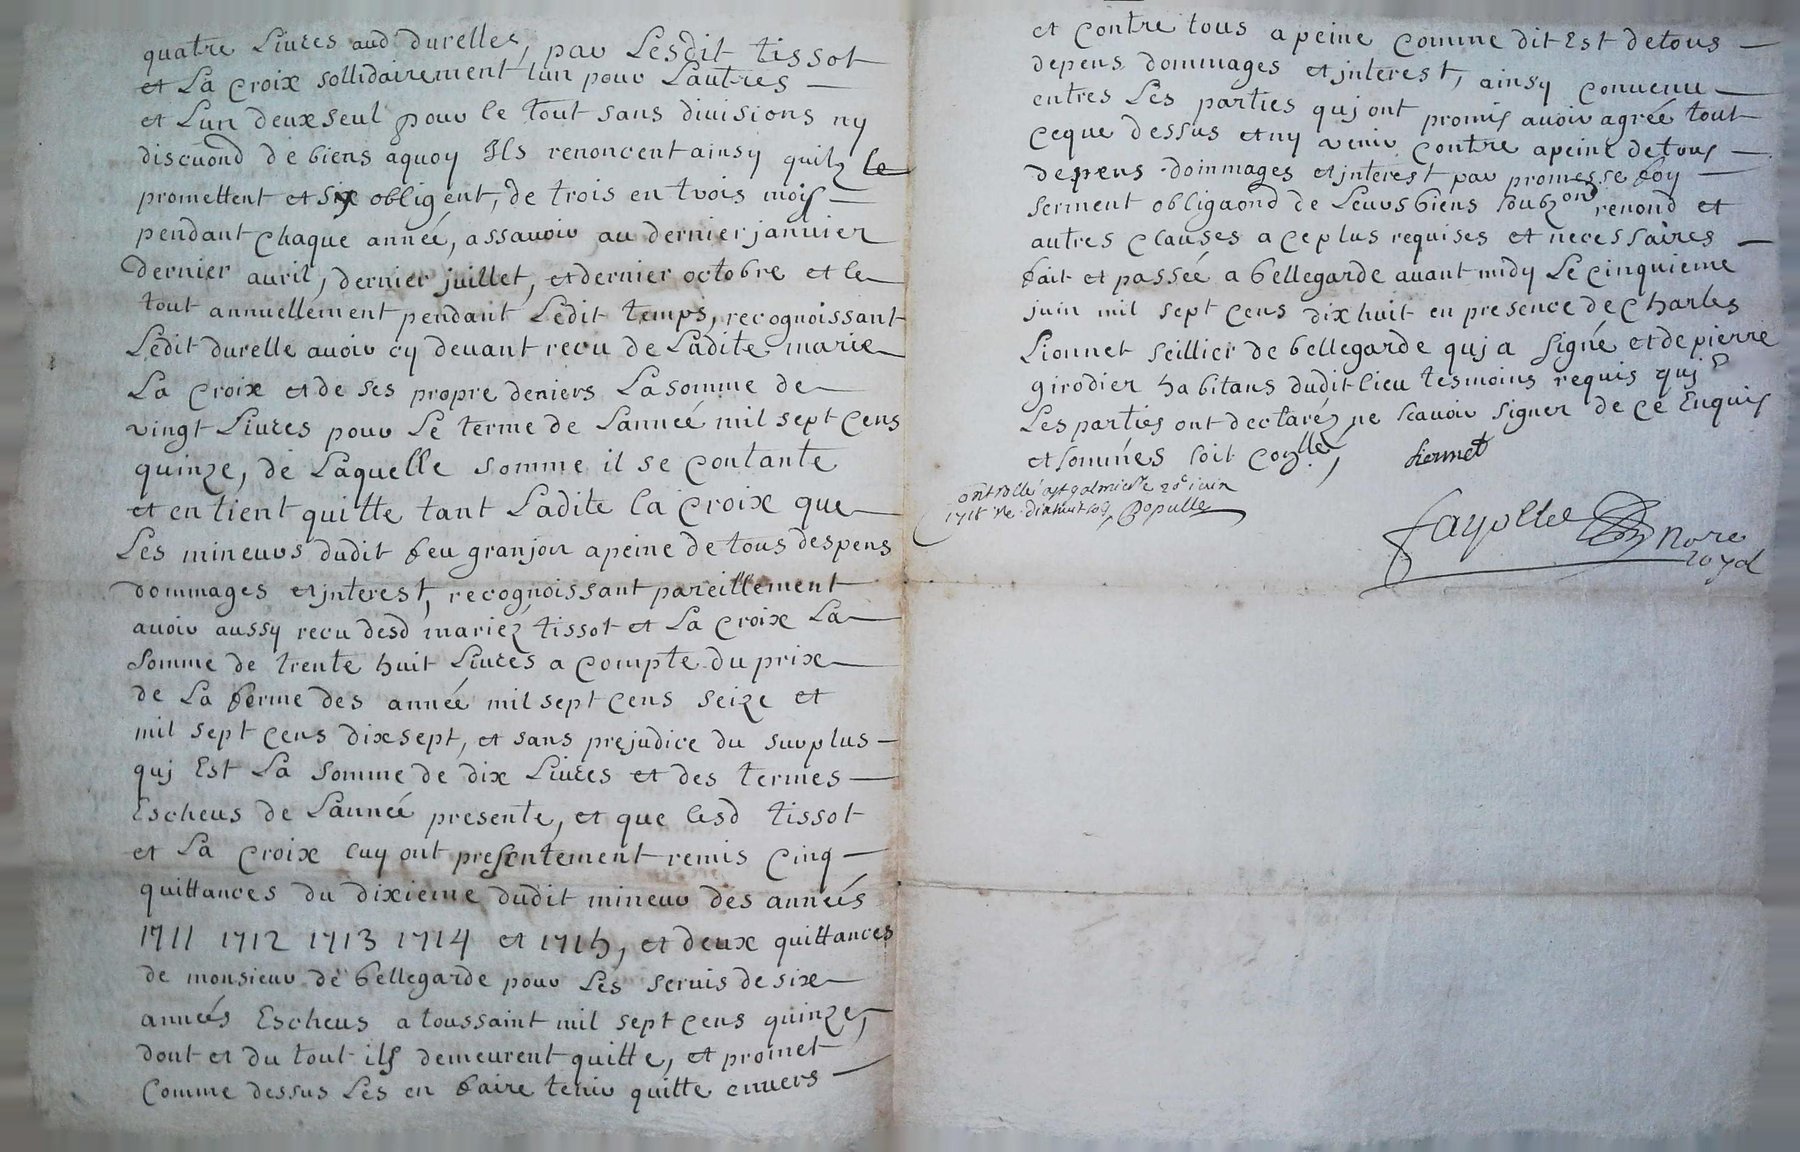 quatre Livres aud durelle, par Lesdit tissot
et La Croix sollidairement lun pour Lautres
et Lun deux seul pour le tout sans divisions ny
discuond de biens aquoy Ils renoncent ainsy quilz le
promettent et six obligent, de trois en trois mois
pendant Chaque année, assavoir au dernier janvier
dernier avril, dernier juillet, et dernier octobre et le
tout annuellement pendant Ledit temps, recognoissant
Ledit durelle avoir cy devant recu de Ladite marie
La Croix et de ses propre deniers La somme de
vingt Livres pour Le terme de Lanneé mil sept Cens
quinze, de Laquelle somme il se contante
et en tient quitte tant Ladite la Croix que
Les mineurs dudit feu granjon a peine de tous despens
dommages et jnterest, recognoissant pareillement
avoir aussy recu desd mariez tissot et La Croix La
somme de trente huit Livres a compte du prix
de La ferme des année mil sept Cens seize et
mil sept Cens dix sept, et sans prejudice du surplus
quj Est La somme de dix Livres et des termes
Escheus de Lanneé presente, et que lesd tissot
et La Croix luy ont presentement remis Cinq
quittances du dixieme dudit mineur des anneés
1711 1712 1713 1714 et 1715, et deux quittances
de monsieur de bellegarde pour Les servis de six
anneés Escheus a toussaint mil sept Cens quinze,
dont et du tout ils demeurent quitte, et promet
Comme dessus Les en faire tenir quitte envers
et Contre tous a peine Comme dit Est de tous
depens dommages et jnterest, ainsy Convenu
entres Les parties quj ont promis avoir agréé tout
Ceque dessus et ny venir Contre a peine de tous
depens dommages et jnterest par promesse foy
serment obligaond de Leurs biens soubzon renond et
autres Clauses a Ce plus requises et necessaires
fait et passéé a bellegarde avant midy Le Cinquieme
juin mil sept Cens dix huit en presence de Charles
Lionnet seillier de bellegarde quj a signé et de pierre
girodier habitans dudit lieu tesmoins requis quj &
Les parties ont declaréz ne scavoir signer de Ce Enquis
et somnés soit
ontrollé a st galmier le 20e juin
1718 Re dix huit Populle
fayolle Nore
royal